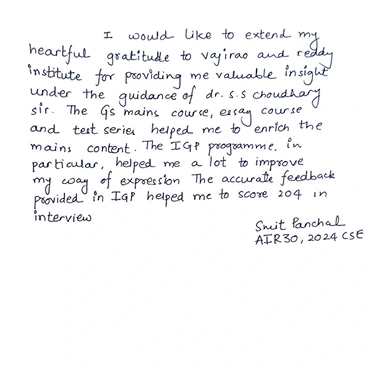 I would like to extend my
heartful gratitude to vajirao and reddy
institute for providing me valuable insight
under the guidance of dr. s.s choudhary
sir. The GS mains course, essay course
and test series helped me to enrich the
mains content. The IGP programme, in
particular, helped me a lot to improve
my way of expression The accurate feedback
provided in IGP helped me to score 204 in
interview
Smit Panchal
AIR 30, 2024 CSE